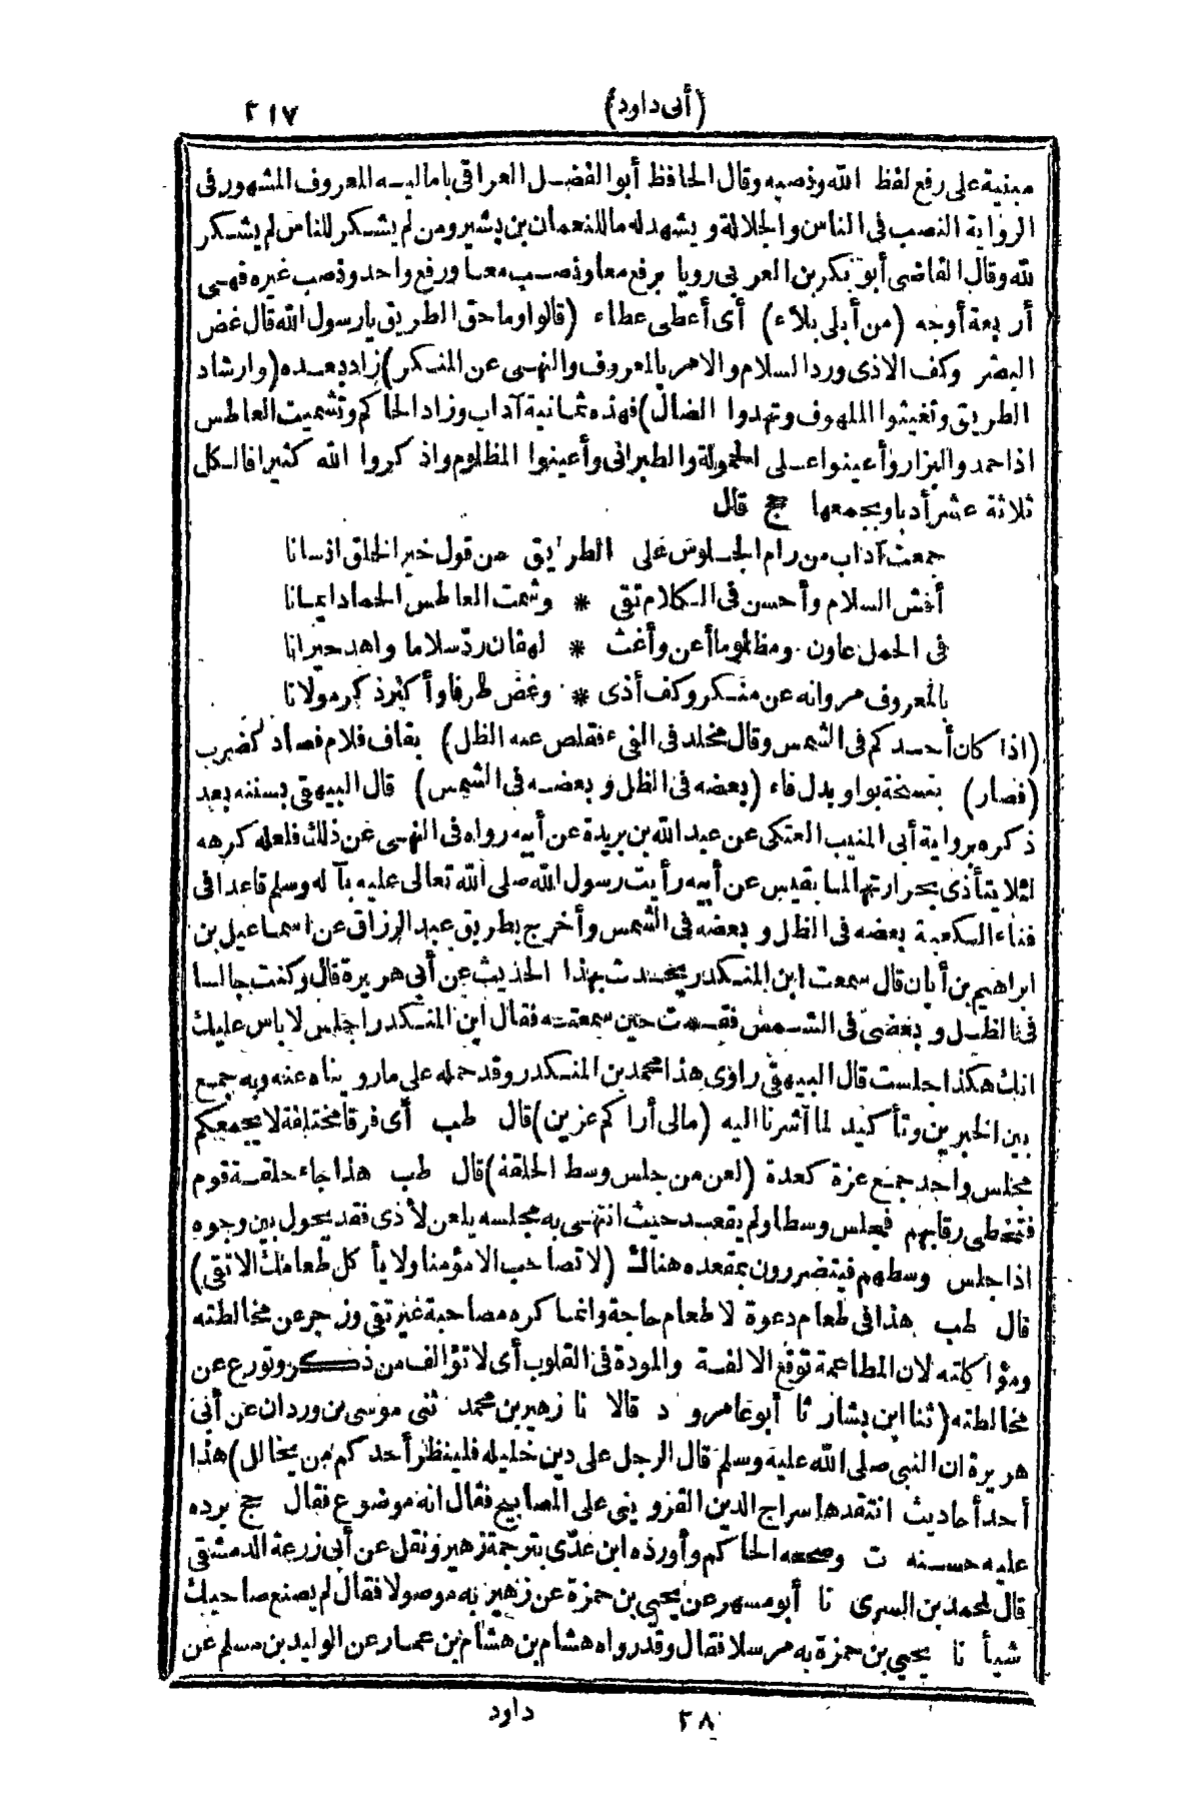 (أبى داود) ٢١٧
مبنية على رفع لفظ الله ونصبه وقال الحافظ أبو الفضل العراقى باماليه المعروف المشهور فى
الرواية النصب فى الناس والجلالة ويشهد له ما للنعمان بن بشير ومن لم يشكر للناس لم يشكر
لله وقال القاضى أبو بكر بن العربى رويا برفع معا ونصب معا ورفع واحد ونصب غيره فهى
أربعة أوجه (من أبلى بلاء) أى أعطى عطاء (قالوا وما حق الطريق يا رسول الله قال غض
البصر وكف الاذى ورد السلام والامر بالمعروف والنهى عن المنكر) زاد بعده (وارشاد
الطريق وتغيثوا الملهوف وتهدوا الضال) فهذه ثمانية آداب وزاد الحاكم وتشميت العاطس
اذا حمد والبزار وأعينوا على الحمولة والطبرانى وأعينوا المظلوم واذكروا الله كثيرا فالكل
ثلاثة عشر أدبا وبجمعها حج قال
جمعت آداب من رام الجلوس على الطريق من قول خير الخلق انسانا
أفش السلام وأحسن فى الكلام تقى * وشمت العاطس الحماد ايمانا
فى الحمل عاون ومظلوما أعن وأغث * لهفان رد سلاما واهد حيرانا
بالمعروف مر وانه عن منكر وكف أذى * وغض طرفا وأكثر ذكر مولانا
(اذا كان أحدكم فى الشمس وقال مخلد فى الفىء فقلص عنه الظل) بقاف فلام فصاد كضرب
(فصار) بنسخة بواو بدل فاء (بعضه فى الظل وبعضه فى الشمس) قال البيهقى بسننه بعد
ذكره برواية أبى المنيب العتكى عن عبد الله بن بريدة عن أبيه رواه فى النهى عن ذلك فلعله كرهه
لئلا يتأذى بحرارتها لما بقيس عن أبيه رأيت رسول الله صلى الله تعالى عليه بآله وسلم قاعدا فى
فناء الكعبة بعضه فى الظل وبعضه فى الشمس وأخرج بطريق عبد الرزاق عن اسماعيل بن
ابراهيم بن أبان قال سمعت ابن المنكدر يحدث بهذا الحديث عن أبى هريرة قال وكنت جالسا
فى الظل وبعضى فى الشمس فقمت حين سمعته فقال ابن المنكدر اجلس لا باس عليك
انك هكذا جلست قال البيهقى راوى هذا محمد بن المنكدر وقد حمله على ما رويناه عنه وبه جمع
بين الخبرين وتأكيد لما أشرنا اليه (مالى أراكم عزين) قال طب أى فرقا مختلفة لا يجمعكم
مجلس واحد جمع عزة كعدة (لعن من جلس وسط الحلقة) قال طب هذا جاء حلقة قوم
فتخطى رقابهم فجلس وسطا ولم يقعد حيث انتهى به مجلسه يلعن لأذى فقد يحول بين وجوه
اذا جلس وسطهم فيتضررون بمقعده هناك (لا تصاحب الا مؤمنا ولا يأكل طعامك الا تقى)
قال طب هذا فى طعام دعوة لا طعام حاجة وانما كره مصاحبة غير تقى وزجر عن مخالطته
ومؤاكلته لان المطاعمة توقع الالفة والمودة فى القلوب أى لا تؤالف من ذكر وتورع عن
مخالطته (ثنا ابن بشار نا أبو عامر و د قالا نا زهير بن محمد ثنى موسى بن وردان عن أبى
هريرة ان النبى صلى الله عليه وسلم قال الرجل على دين خليله فلينظر أحدكم من يخالل) هذا
أحد أحاديث انتقدها سراج الدين القزوينى على المصابيح فقال انه موضوع فقال حج برده
عليه حسنه ت وصححه الحاكم وأورده ابن عدى بترجمة زهير ونقل عن أبى زرعة الدمشقى
قال لمحمد بن السرى نا أبو مسهر عن يحيى بن حمزة عن زهير به موصولا فقال لم يصنع صاحبك
شيأ نا يحيى بن حمزة به مرسلا فقال وقد رواه هشام بن هشام بن عمار عن الوليد بن مسلم عن
٢٨ داود